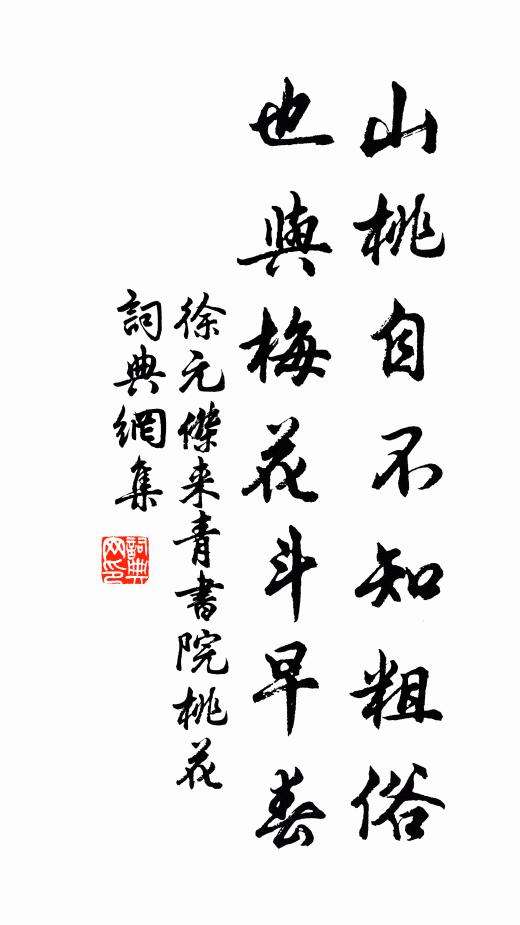 山桃自不知粗俗
也與梅花斗早春
徐元傑来青書院桃花
詞典網集
詞典
网印